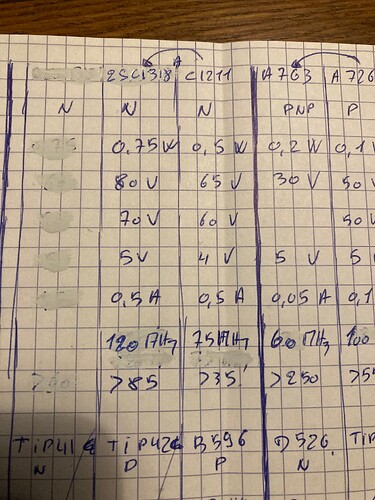 2SC1318 C1211 A763 A726
N N N PNP P
0,75W 0,5W 0,2W 0,1
80V 65V 30V 50
70V 60V 50
5V 4V 5V 5
0,5A 0,5A 0,05A 0,1
120 МГц 75МГц 60МГц 100
>85 >35 >250 >5
TiP41C TiP42C B596 D526 TiP
N P P N